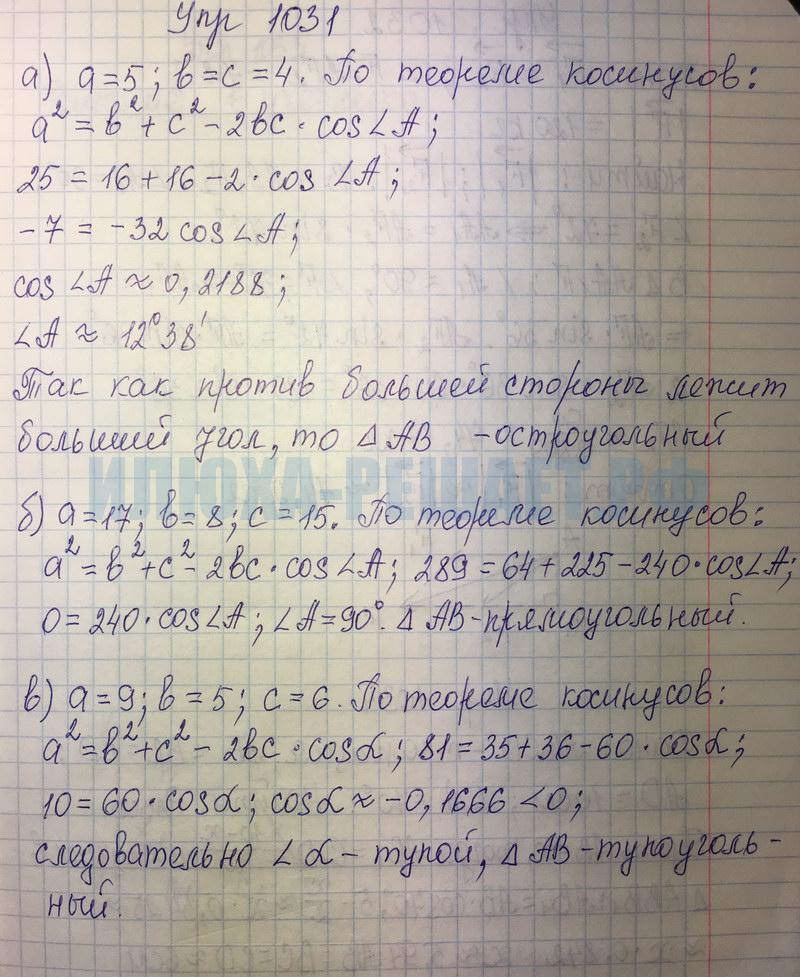 Упр 1031
а) a=5; в=с=4. По теореме косинусов:
a² = в² + с² - 2вс · cos∠A;
25 = 16 + 16 - 2 · cos ∠A;
-7 = -32 cos∠A;
cos ∠A ≈ 0,2188;
∠A ≈ 12°38'
Так как против большей стороны лежит
больший угол, то △ AB -остроугольный
ИЛЮХА-РЕШАЕТ.РФ
б) a=17; в=8; с=15. По теореме косинусов:
a² = в² + с² - 2вс · cos∠A; 289 = 64 + 225 - 240 · cos∠A;
0 = 240 · cos∠A; ∠A = 90°. △ AB-прямоугольный.
в) a=9; в=5; с=6. По теореме косинусов:
a² = в² + с² - 2вс · cosα; 81 = 35 + 36 - 60 · cosα;
10 = 60 · cosα; cosα ≈ -0,1666 < 0;
следовательно ∠α - тупой, △ AB-тупоуголь-
ный.